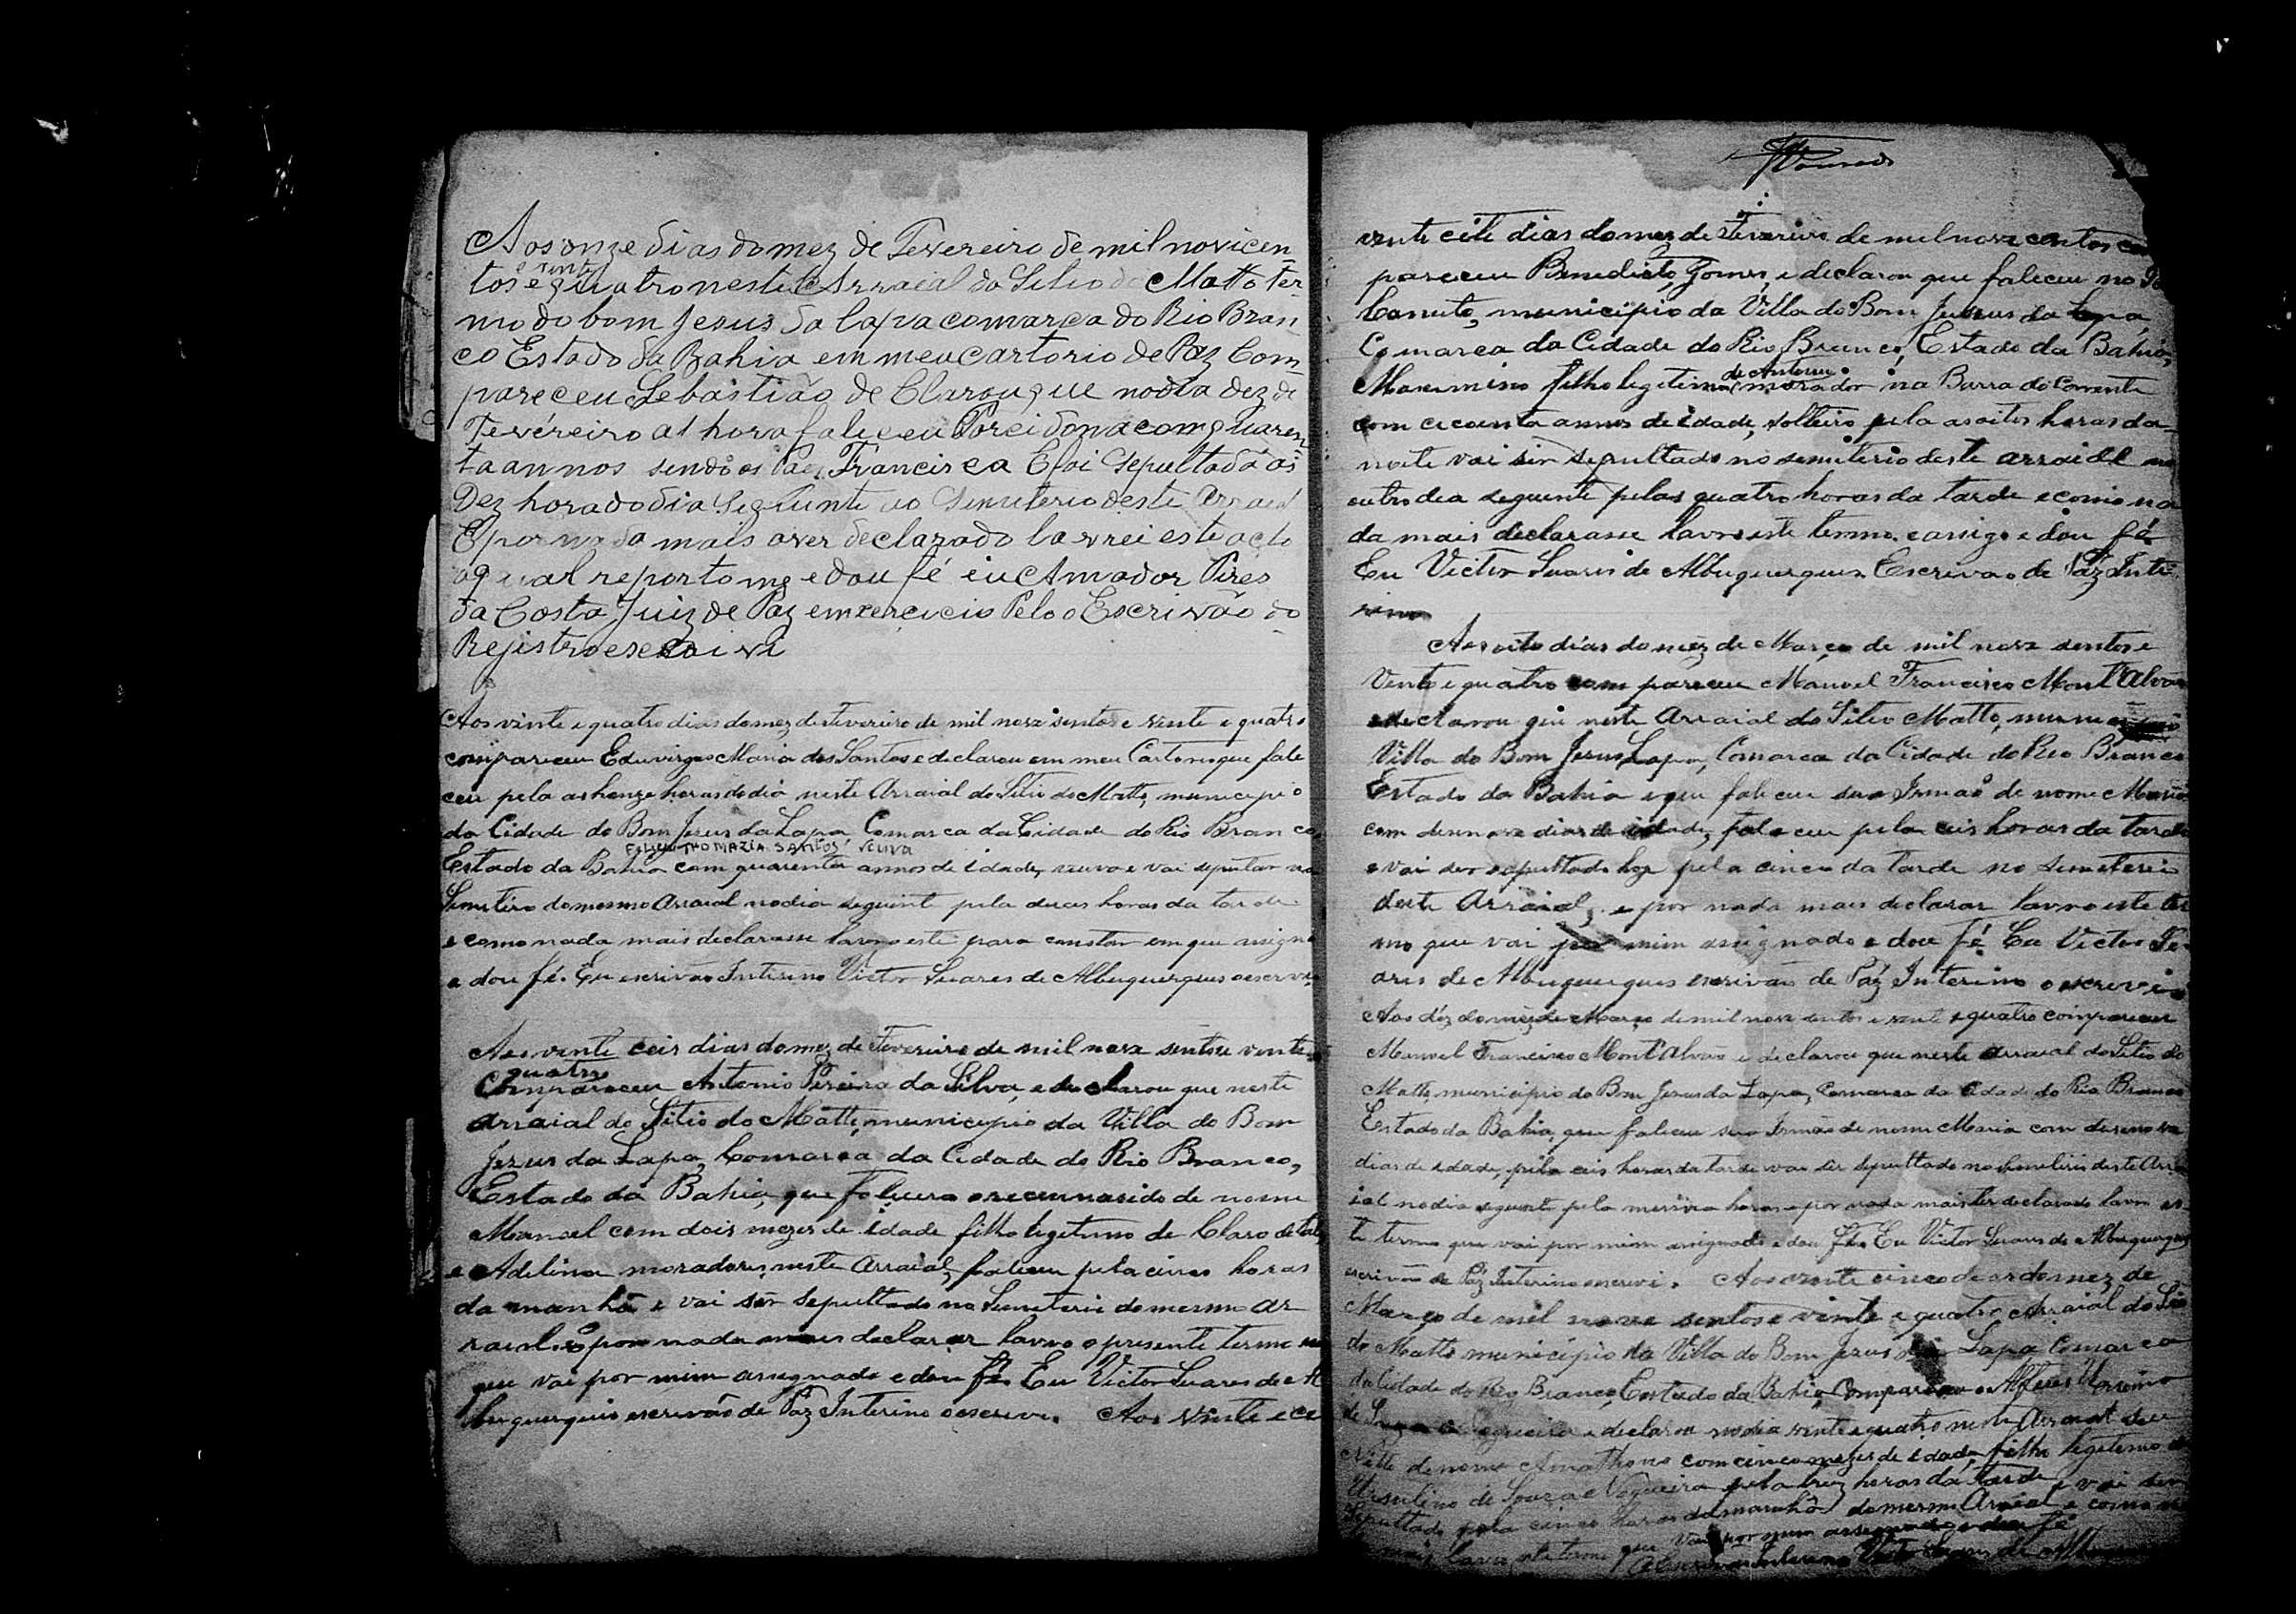 Aos onze dias do mez de Fevereiro de mil novicen-
tos e vinte e quatro neste Arraial do Sitio do Matto ter-
mo do bom Jesus da lapa comarca do Rio Bran
co Estado da Bahia em meu cartorio de Paz Com-
pareceu Sebastião de Clarou que no dia dez de
Fevéreiro a 1 hora faliceu Porcidona com quaren
ta annos sendo os Pae Francisca E foi Sepultada ás
Dez hora do dia Seguinte ao Semiterio deste Arraial
E por nada mais aver declarado lavrei este acto
aqual reporto me e dou fé eu Amador Pires
da Costa Juiz de Paz em xercicio Pelo o Escrivão do
Rejistro escrivi
Aos vinte e quatro dias do mez de Fevereiro de mil nove sentos e vinte e quatro
compareceu Eduvirges Maria dos Santos e declarou em meu Cartorio que fale
ceu pela as honze horas do dia neste Arraial do Sitio do Matto, municipio
da Cidade do Bom Jesus da Lapa Comarca da Cidade do Rio Branco,
THOMAZIA SANTOS viuva
Estado da Bahia com quarenta annos de idade, viuva e vai sepultar no
Semitiro do mesmo Arraial no dia seguinte pela duas horas da tarde
e como nada mais declarasse lavro este para constar em que assigno
e dou fé. Eu escrivão Interino Victor Suares de Albuquerques o escrevi
Aos vinte ceis dias do mez de Fevereiro de mil nove sentos e vinte e
quatro
Compareceu Antonio Pereira da Silva, e declarou que neste
arraial do Sitio do Matto, municipio da Villa do Bom
Jezus da Lapa, Comarca da Cidade do Rio Branco,
Estado da Bahia, que faliceu o recemnacido de nome
Manoel com dois mezes de idade filho legitimo de Claro de tal
e Adelina moradores neste Arraial, faliceu pela cinco horas
da manhã e vai sêr sepultado no Semeterio do mesmo ar
raial. E por nada mais declarar lavro o presente termo em
que vai por mim assignado e dou fé. Eu Victor Suares de Al
buquerquis escrivão de Paz Interino o escrevi. Aos vinte e ce
vinte ceite dias do mez de Fevereiro de mil nove centos com
pareceu Benedicto Gomes, e declarou que faleceu no
Canuto, municipio da Villa do Bom Jesus da Lapa,
Comarca da Cidade do Rio Branco, Estado da Bahia,
de Antonio
Maximino filho legitimo morador na Barra do Corrente
com cecoenta annos de idade, solteiro pela as oitos horas da
noite vai sêr sepultado no semiterio deste arraial no
outro dia seguente pelas quatro horas da tarde e como na
da mais declarasse lavro este termo e assigo e dou fé
Eu Victor Suares de Albuquerques Escrivão de Páz Inte
rino
Aos oito dias do mêz de Março de mil nove sentos e
vente e quatro compareceu Manoel Francisco Mont'Alvão
e declarou que neste Arraial do Sitio Matto, municipio
Villa do Bom Jesus Lapa, Comarca da Cidade do Rio Branco
Estado da Bahia e que faliceu sua Irmaã de nome Maria
com desnove dias de idade, faleceu pela ceis horas da tarde
e vai ser sepultado hoje pela cinco da tarde no semeterio
deste Arraial, e por nada mais declarar lavro este ter
mo que vai por mim assignado e dou fé Eu Victor So-
ares de Albuquerques escrivão de Páz Interino o escrevi
Aos déz do mêz de Março de mil nove sentos e vente e quatro compareceu
Manoel Francisco Mont'Alvão e declarou que neste arraial do Sitio do
Matto municipio do Bom Jesus da Lapa, Comarca da Cidade do Rio Branco
Estado da Bahia, que faliceu sua Irmão de nome Maria com desenove
dias de idade, pela ceis horas da tarde vai sêr sepultado no Semeterio deste Arra
ial no dia seguente pela mesma horas e por nada mais ter declarado lavro es-
te termo que vai por mim assignado e dou fé. Eu Victor Suares de Albuquerques
escrivão de Páz Interino escrevi. Aos vente cinco de as do mez de
Março de mil nove sentos e vinte e quatro Arraial do Sitio
do Matto municipio da Villa do Bom Jezus da Lapa Comarca
da Cidade do Rio Branco, Estado da Bahia, Compareceu
de Souza e Nogueira e declarou no dia vinte e quatro neste Arraial seu
de nome com cinco mezes de idade, filho legitemo de
Ursulino de Souza e Nogueira pela trez horas da tarde e vai ser
sepultado pela cinco horas da manhã do mesmo Arraial e como
mais lavro este termo que vai por mim assignado e dou fé